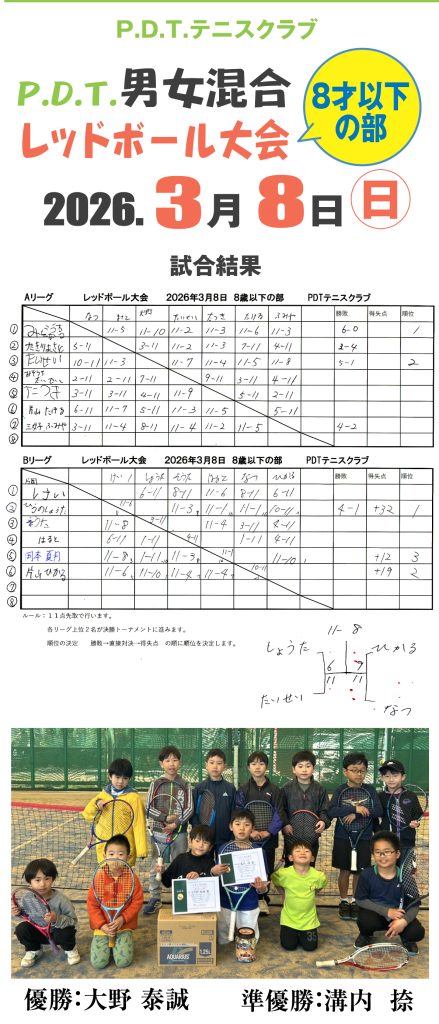 P.D.T.テニスクラブ
P.D.T.男女混合
レッドボール大会
8才以下
の部
2026.3月8日 日
試合結果
Aリーグ レッドボール大会 2026年3月8日 8歳以下の部 PDTテニスクラブ
なつ たいせい たつき たける ふみや 勝敗 得失点 順位
① 11-5 11-10 11-2 11-3 11-6 11-3 6-0 1
② 5-11 3-11 11-2 11-3 7-11 4-11 2-4
③ たいせい 10-11 11-3 11-7 11-4 11-5 11-8 5-1 2
④ 2-11 2-11 7-11 9-11 3-11 4-11
⑤ たつき 3-11 3-11 4-11 11-9 5-11 2-11
⑥ 青山たける 6-11 11-7 5-11 11-3 11-5 5-11
⑦ ふみや 3-11 11-4 8-11 11-4 11-2 11-5 4-2
⑧
Bリーグ レッドボール大会 2026年3月8日 8歳以下の部 PDTテニスクラブ
けい しょうた そうた はると なつ ひかる 勝敗 得失点 順位
① 片岡 けい 6-11 8-11 11-6 8-11 6-11
② しょうた 11-6 11-3 11-1 11-1 10-11 4-1 +32 1
③ そうた 11-8 3-11 11-4 3-11 4-11
④ はると 6-11 1-11 4-11 1-11 4-11
⑤ 岡本夏月 11-8 1-11 11-3 11-1 11-10 +12 3
⑥ 片山ひかる 11-6 11-10 11-4 11-4 10-11 +19 2
⑦
⑧
ルール:11点先取で行います。
各リーグ上位2名が決勝トーナメントに進みます。
順位の決定 勝敗→直接対決→得失点 の順に順位を決定します。
11-8
しょうた ひかる
6 9
11 11
たいせい なつ
AQUARIUS
優勝:大野 泰誠 準優勝:溝内 捺